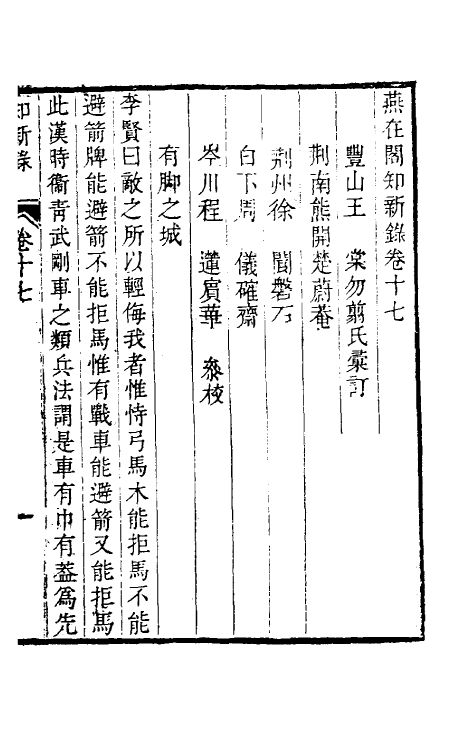 燕在閣知新錄卷十七
豐山王　棠勿翦氏彙訂
荆南熊開楚蔚菴
荆州徐　聞磐石
白下周　儀確齋
岑川程　蓮賓華　叅校
有脚之城
李賢曰敵之所以輕侮我者惟恃弓馬木能拒馬不能
避箭牌能避箭不能拒馬惟有戰車能避箭又能拒馬
此漢時衞青武剛車之類兵法謂是車有巾有葢爲先
知新錄　卷十七　一